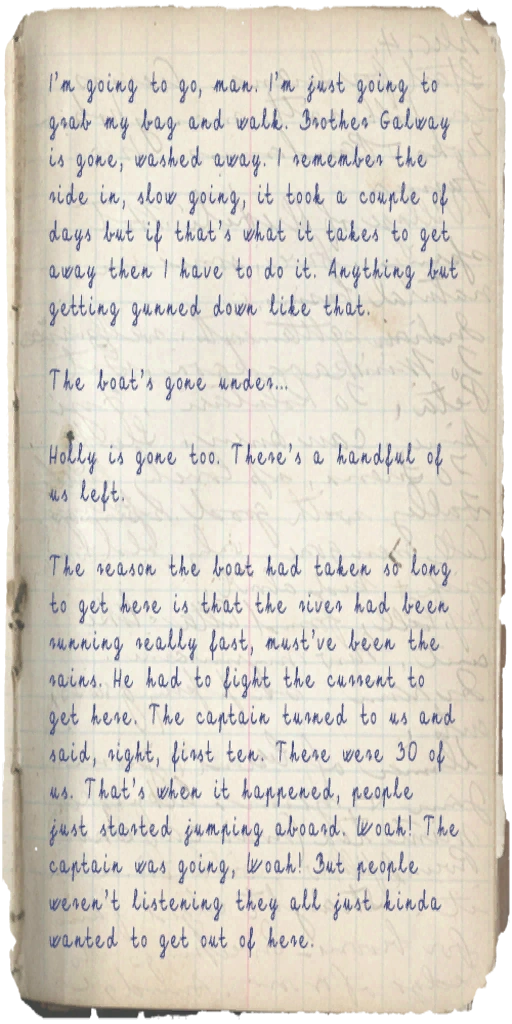 I'm going to go, man. I'm just going to
grab my bag and walk. Brother Galway
is gone, washed away. I remember the
ride in, slow going, it took a couple of
days but if that's what it takes to get
away then I have to do it. Anything but
getting gunned down like that.
The boat's gone under...
Holly is gone too. There's a handful of
us left.
The reason the boat had taken so long
to get here is that the river had been
running really fast, must've been the
rains. He had to fight the current to
get here. The captain turned to us and
said, right, first ten. There were 30 of
us. That's when it happened, people
just started jumping aboard. Woah! The
captain was going, Woah! But people
weren't listening they all just kinda
wanted to get out of here.